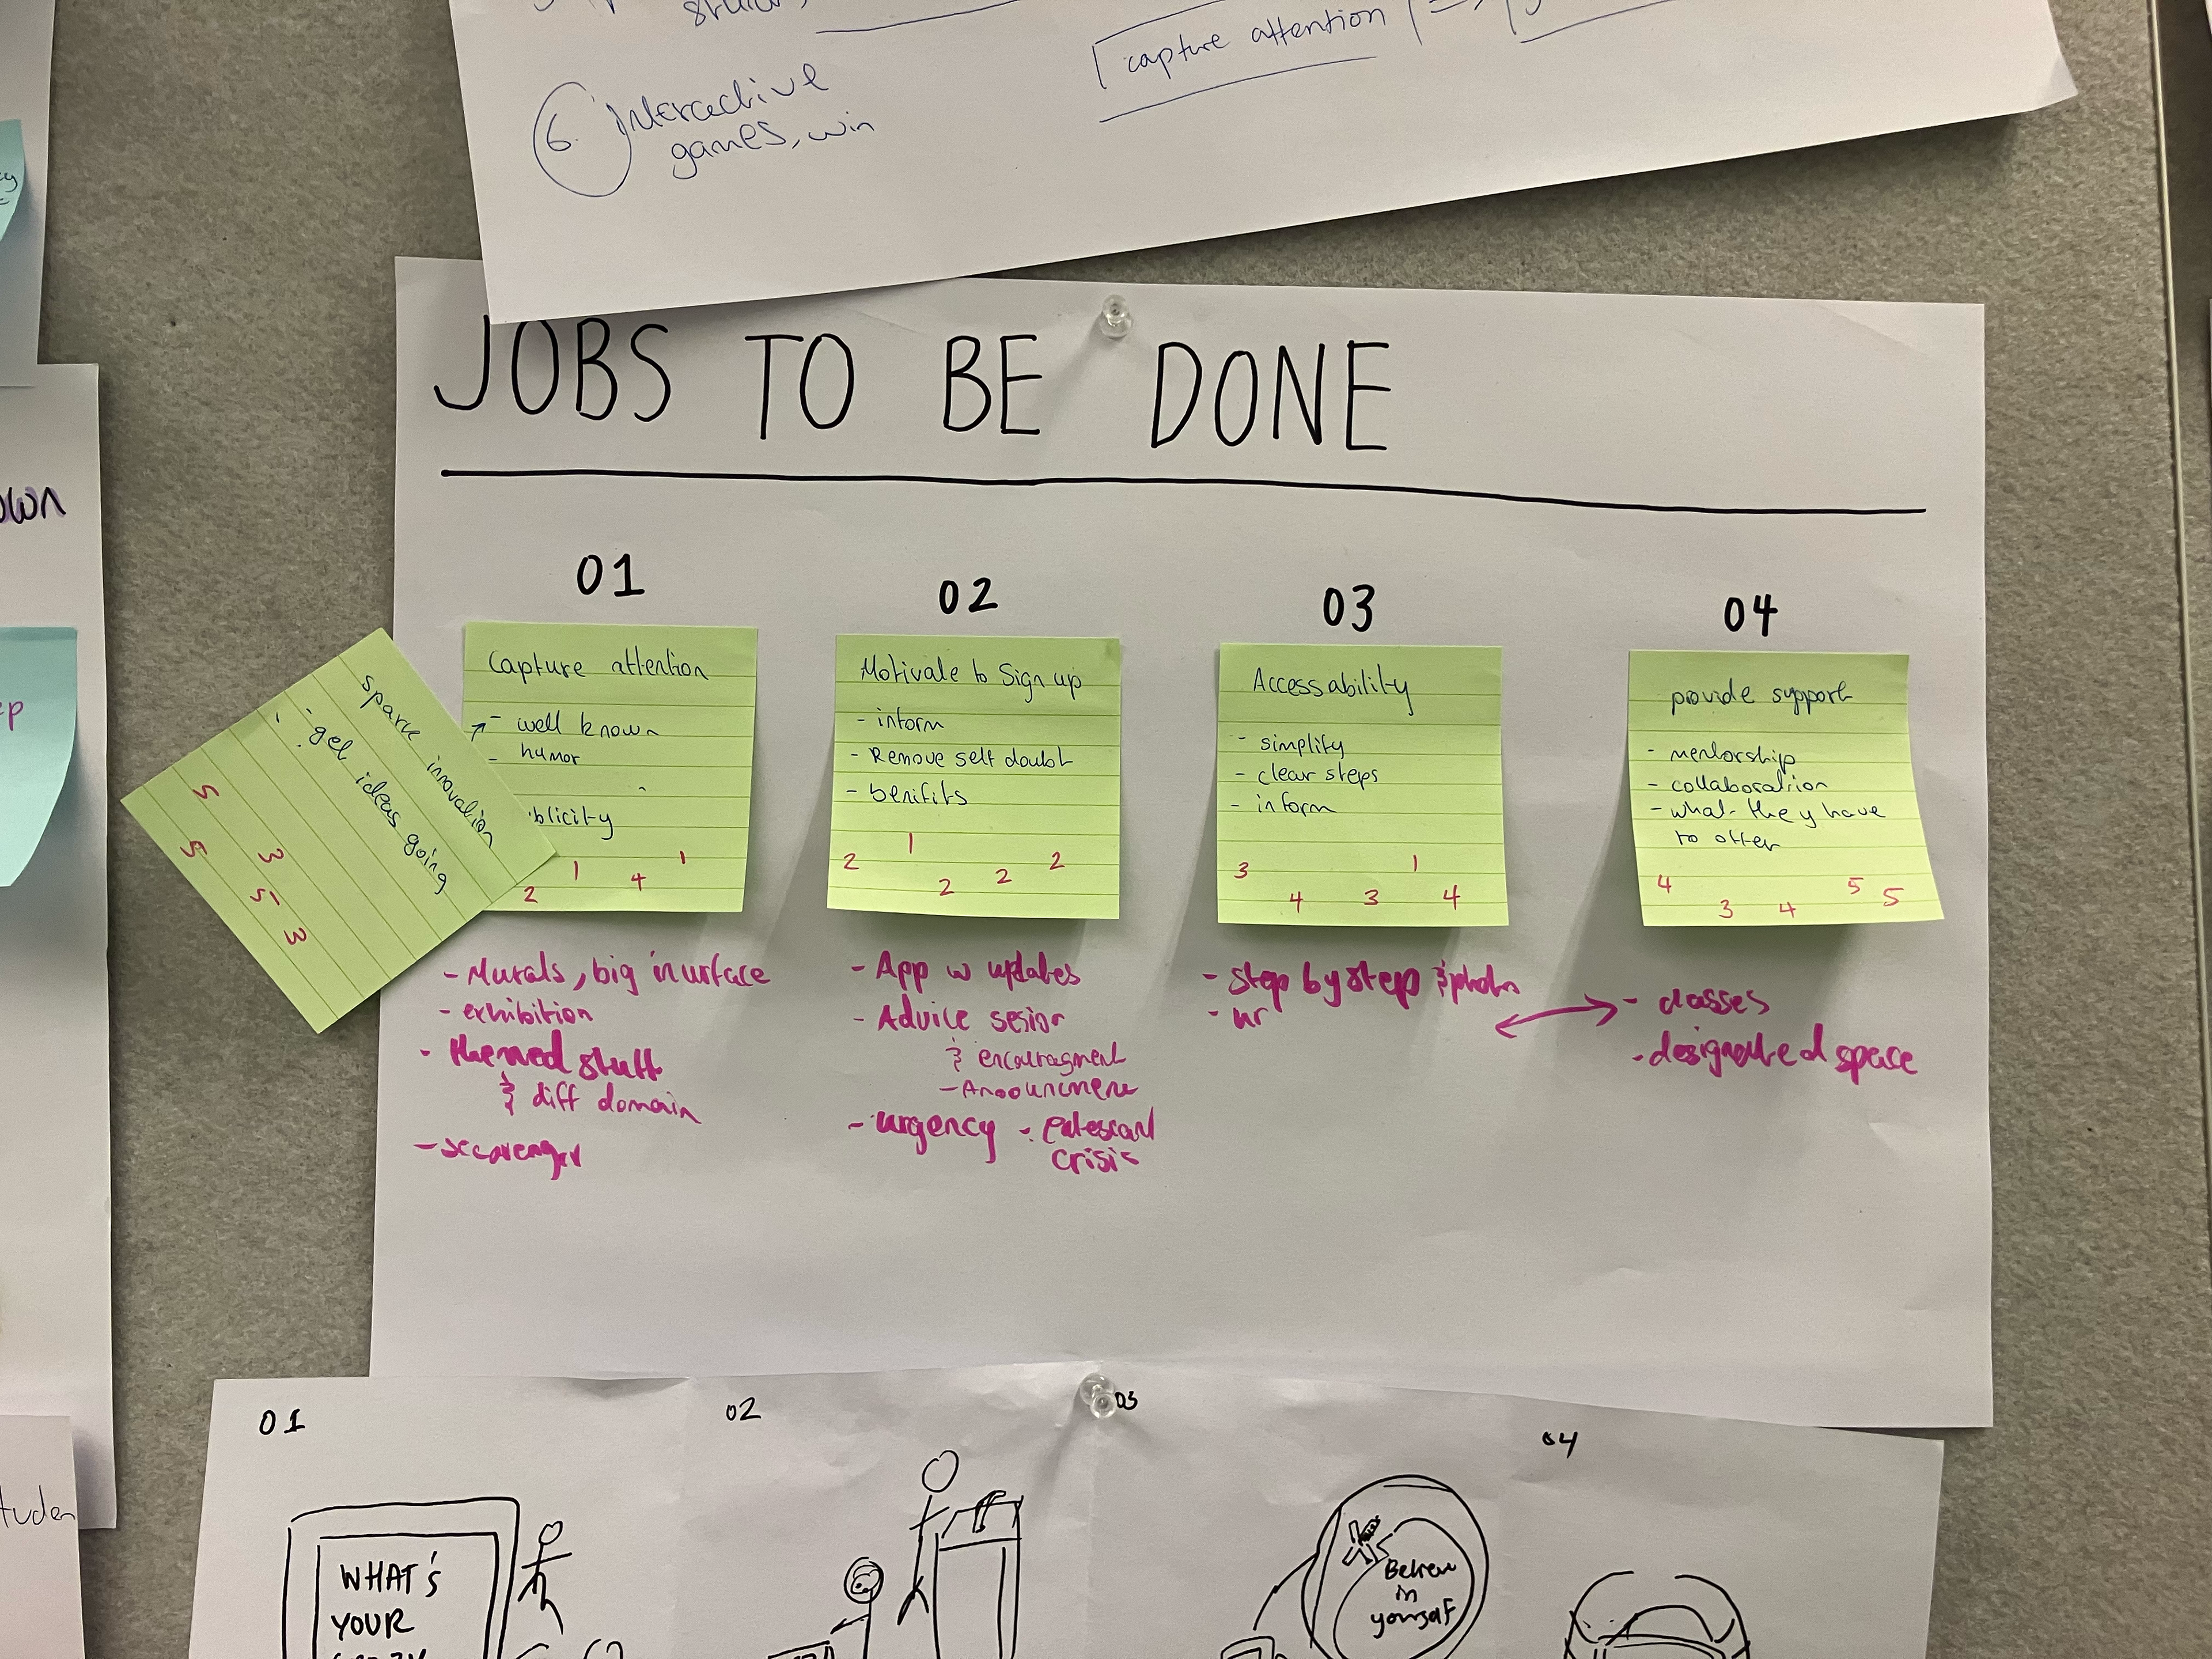 capture attention
6. Interactive
games, win
JOBS TO BE DONE
01
Capture attention
- well known
- humor
blicity
2 1 4 1
sparke innovation
- get ideas going
5
5 3
5
3
- Murals, big
- exhibition
- themed stuff
& diff domain
02
Motivate to Sign up
- inform
- Remove self doubt
- benifits
2 1 2 2 2
- App w updates
- Advice
& encouragment
- urgency -
crisis
03
Accessability
- simplify
- clear steps
- inform
3 4 3 1 4
- step by step &
04
provide support
- mentorship
- collaboration
- what they have
to offer
4 3 4 5 5
- classes
- designated space
own
ep
tuden
01
WHAT'S
YOUR
02
03
in
yourself
04